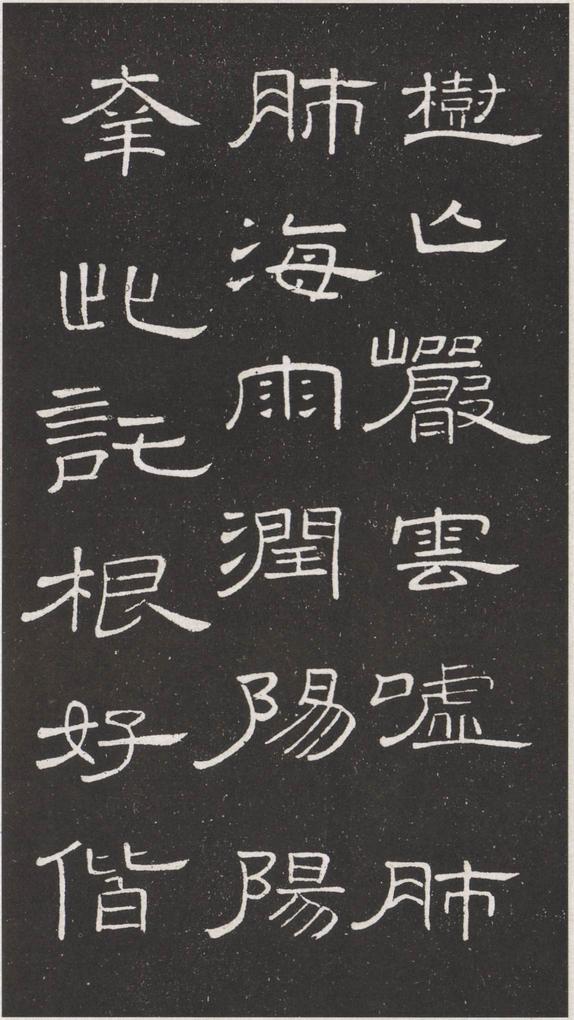 樹亾巖雲嘘肺
肺海雨潤陽陽
幸此託根好偕